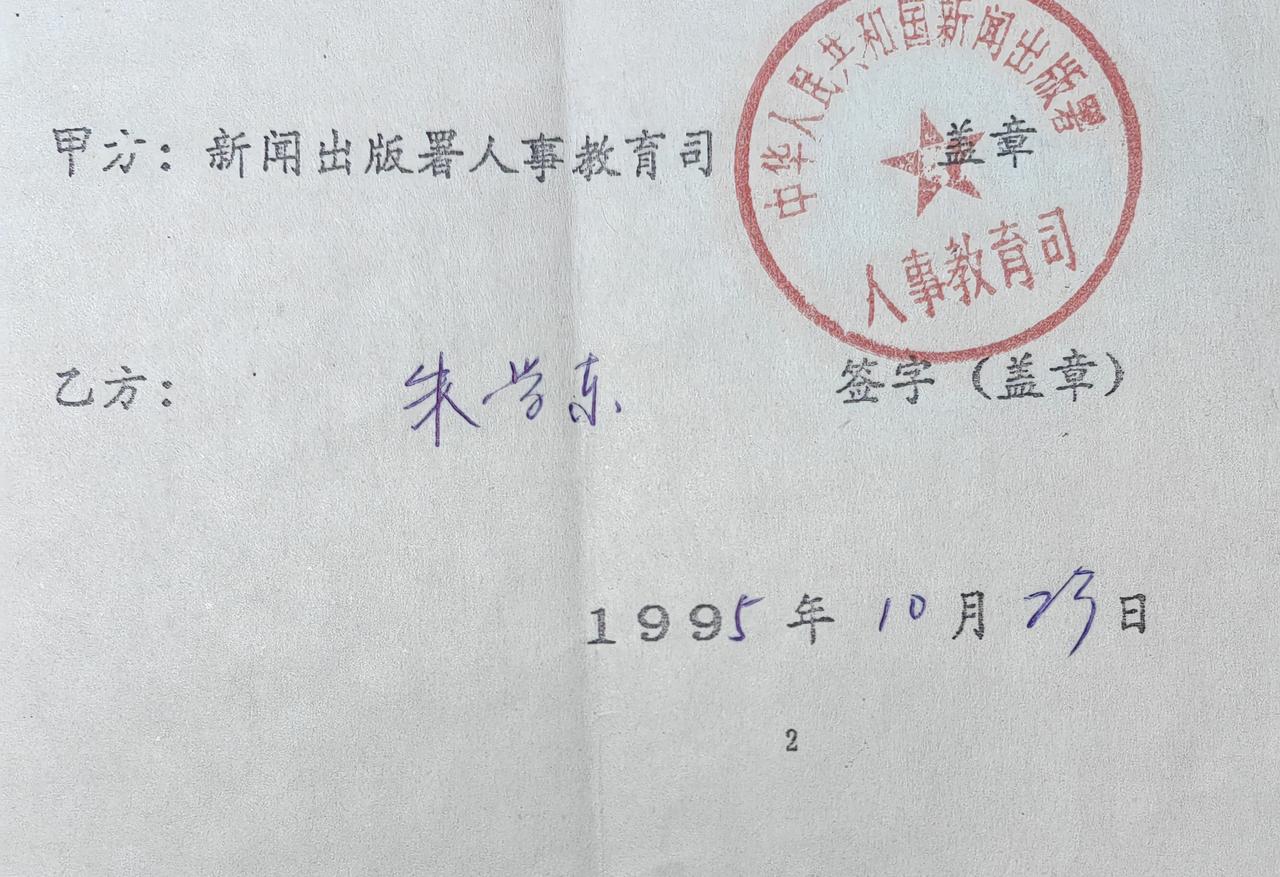 中华人民共和国新闻出版署
甲方：新闻出版署人事教育司 盖章
人事教育司
乙方： 朱学东 签字（盖章）
1995年10月23日
2